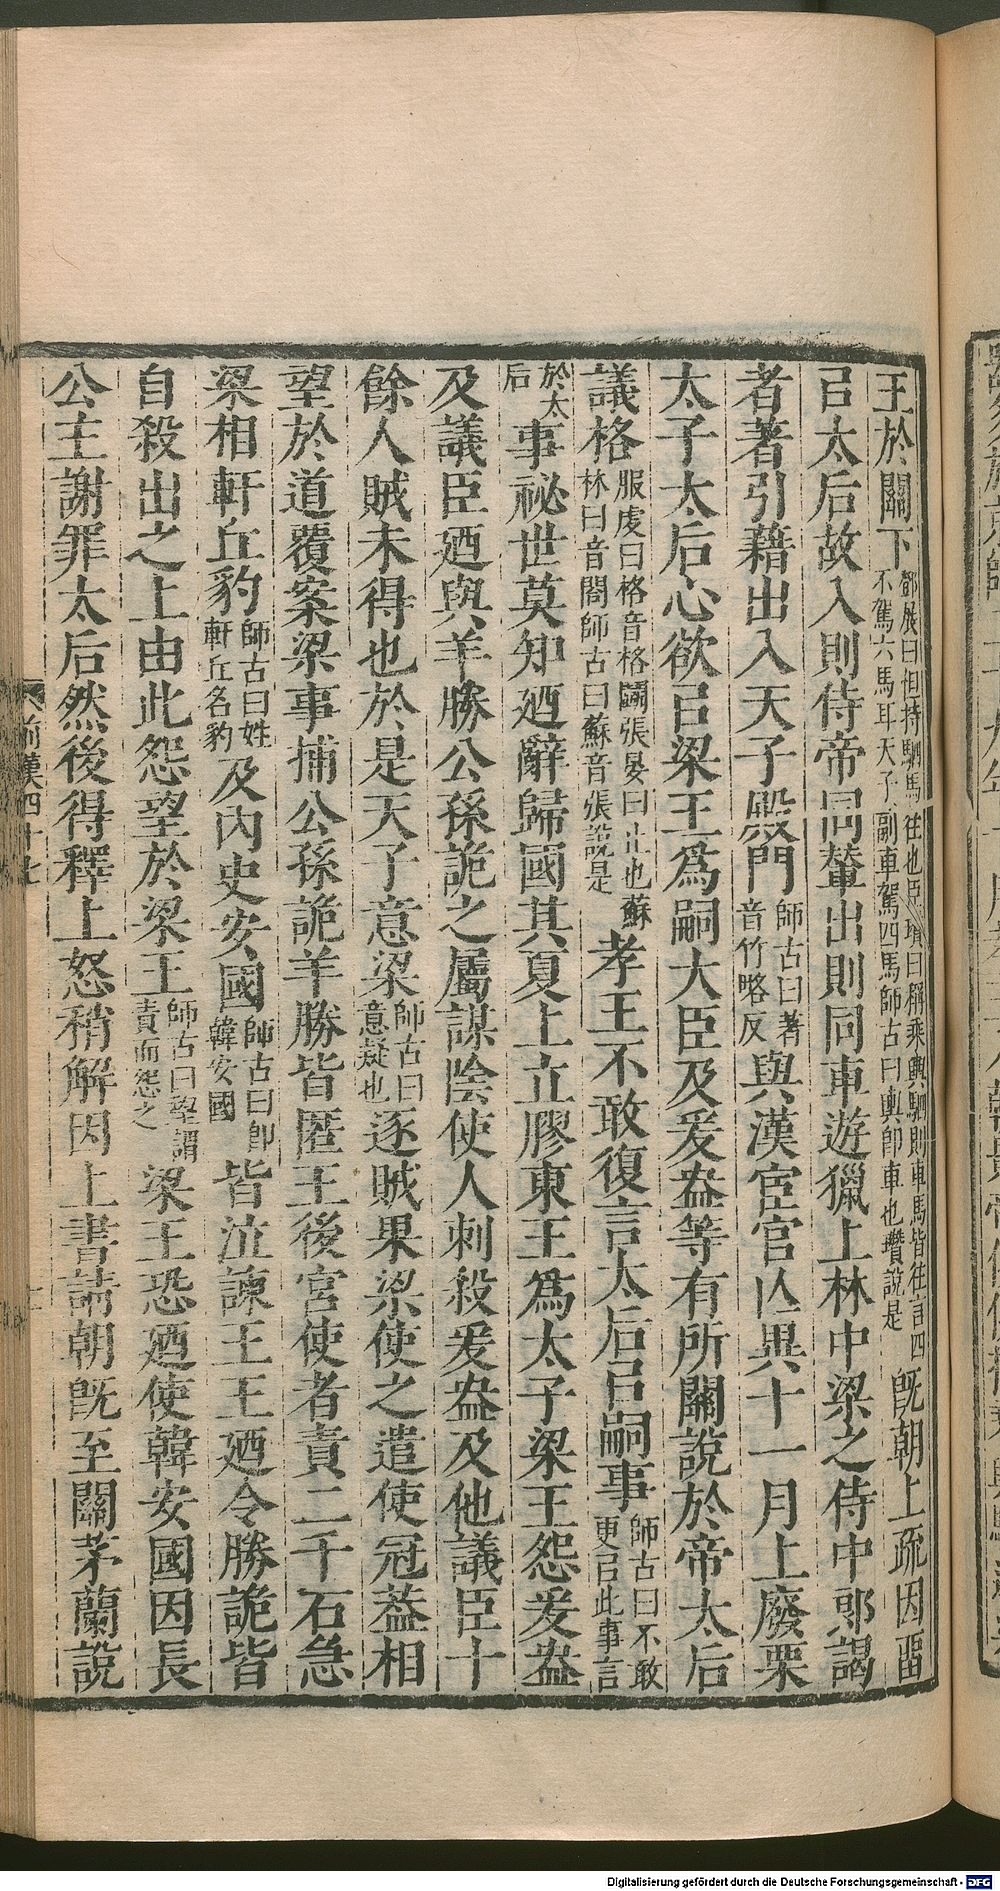 王於關下鄧展曰但持駟馬往也臣瓚曰稱乘輿駟則車馬皆往言四不駕六馬耳天子副車駕四馬師古曰輿卽車也瓚說是旣朝上疏因畱
㠯太后故入則侍帝同輦出則同車遊獵上林中梁之侍中郎謁
者著引籍出入天子殿門師古曰著音竹略反與漢宦官亾異十一月上廢栗
太子太后心欲㠯梁王爲嗣大臣及爰盎等有所關說於帝太后
議格服虔曰格音格鬬張晏曰止也蘇林曰音閣師古曰蘇音張說是孝王不敢復言太后㠯嗣事師古曰不敢更㠯此事言
於太后事祕世莫知廼辭歸國其夏上立膠東王爲太子梁王怨爰盎
及議臣廼與羊勝公孫詭之屬謀陰使人刺殺爰盎及他議臣十
餘人賊未得也於是天子意梁師古曰意疑也逐賊果梁使之遣使冠蓋相
望於道覆案梁事捕公孫詭羊勝皆匿王後宮使者責二千石急
梁相軒丘豹師古曰姓軒丘名豹及內史安國師古曰卽韓安國皆泣諫王王廼令勝詭皆
自殺出之上由此怨望於梁王師古曰望謂責而怨之梁王恐廼使韓安國因長
公主謝罪太后然後得釋上怒稍解因上書請朝旣至關茅蘭說
前漢四十七
Digitalisierung gefördert durch die Deutsche Forschungsgemeinschaft - DFG